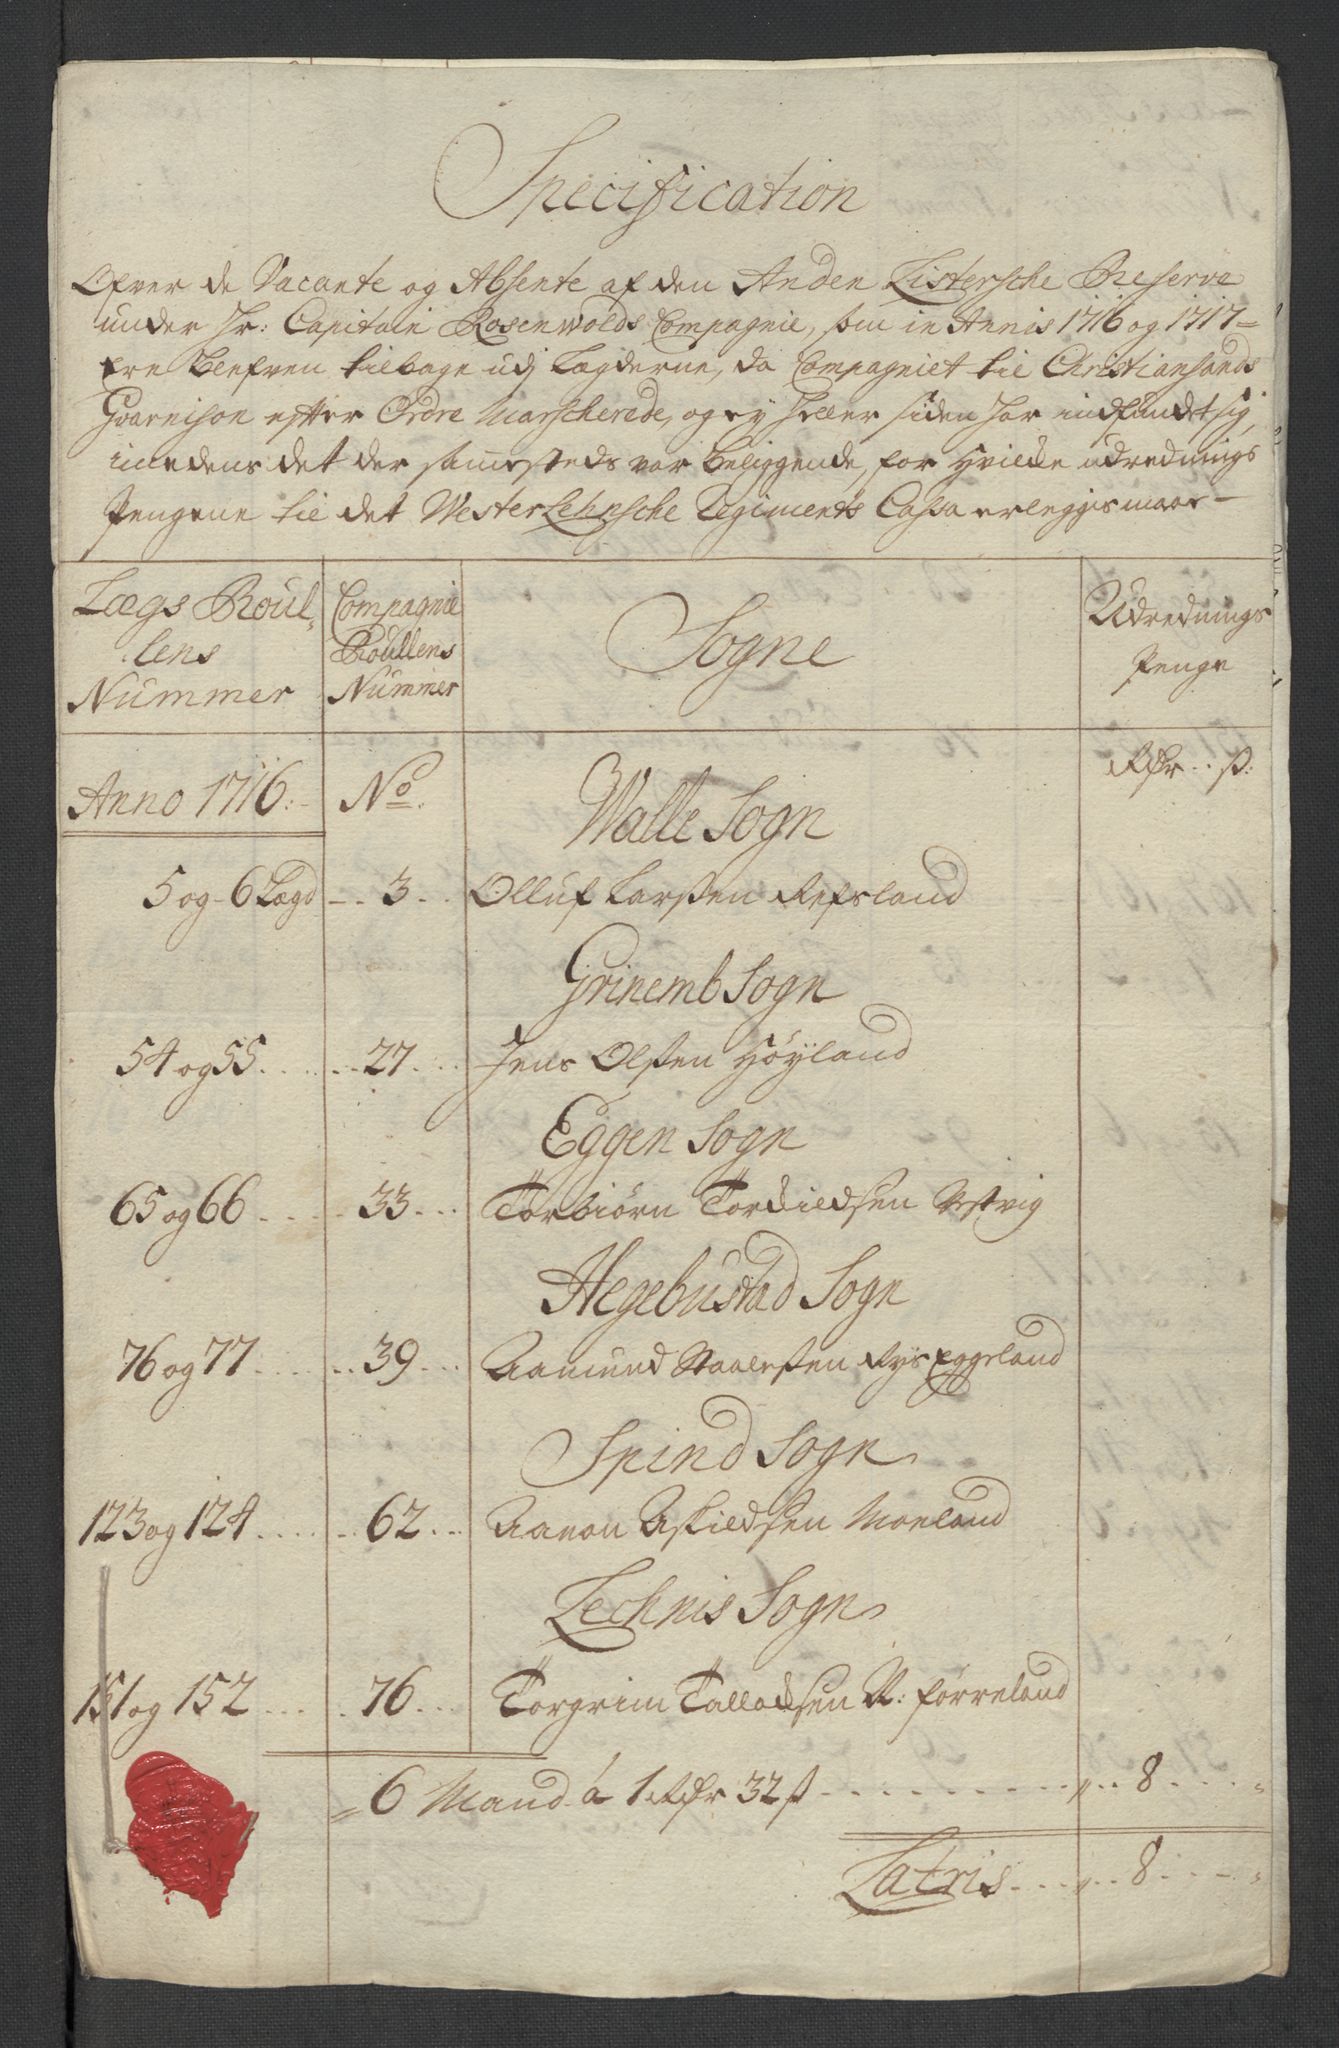 Specification
Ofver de Vacante og Absente af den Anden Listersche Reserve
under Hr: Capitain Rosenwolds Compagnie, som in Annis 1716 og 1717
ere blefven tilbage udj Lægderne, da Compagniet til Christiansands
Guarnison efter Ordre Marscherede, og ey heller siden har indfundet sig,
imedens det der samesteds var beliggende, for hvilke udrednings
Pengene til det Westerlehnsche Regiments Cassa erlegges maae
Lægs Roul-
lens
Nummer
Compagnie
Roullens
Nummer
Sogne
Udrednings
Penge
Rdr .. ß:
Anno 1716:
No
Walle Sogn
5 og 6 Lægd .. 3 .. Olluf Larßen Refsland
Grinemb Sogn
54 og 55 .... 27 ... Jens Olßen Høyland
Eggen Sogn
65 og 66 .... 33 ... Torbiørn Tordildsen
Hegebustad Sogn
76 og 77 .... 39 ... Aamund Staalesßen Rys Eggeland
Spind Sogn
123 og 124 .... 62 ... Aanon Askildsen Moeland
Lechnis Sogn
151 og 152 .... 76 ... Torgrim Talladsen N: førreland
6 Mand á 1 Rdr 32 ß .......... 8 ....
Latris .... 8 ....